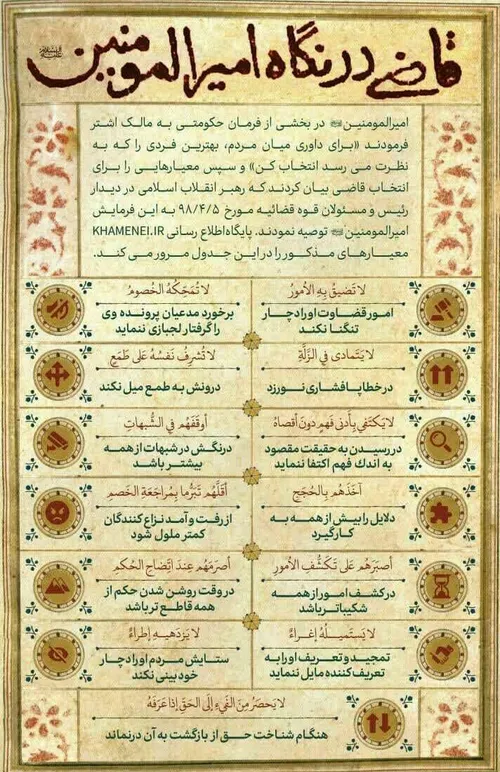 قاضی در نگاه امیرالمومنین
امیرالمومنین در بخشی از فرمان حکومتی به مالک اشتر
فرمودند «برای داوری میان مردم، بهترین فردی را که به
نظرت می رسد انتخاب کن» و سپس معیارهایی را برای
انتخاب قاضی بیان کردند که رهبر انقلاب اسلامی در دیدار
رئیس و مسئولان قوه قضائیه مورخ ۹۸/۴/۵ به این فرمایش
امیرالمومنین توصیه نمودند. پایگاه اطلاع رسانی KHAMENEI.IR
معیارهای مذکور را در این جدول مرور می کند.
لا تَضیقُ بِهِ الأمورُ
امور قضاوت او را دچار
تنگنا نکند
لا تُمَحِّکُهُ الخُصومُ
برخورد مدعیان پرونده وی
را گرفتار لجبازی ننماید
لا یَتَمادی فِي الزَّلَّةِ
در خطا پافشاری نورزد
لا تُشرِفُ نَفسُهُ عَلی طَمَعٍ
درونش به طمع میل نکند
لا یَکتَفي بِأَدنی فَهمٍ دونَ أقصاهُ
در رسیدن به حقیقت مقصود
به اندک فهم اکتفا ننماید
أوقَفَهُم فِي الشُّبهاتِ
درنگش در شبهات از همه
بیشتر باشد
آخَذَهُم بِالحُجَجِ
دلایل را بیش از همه به
کار گیرد
أقَلَّهُم تَبَرُّما بِمُراجَعَةِ الخَصمِ
از رفت و آمد نزاع کنندگان
کمتر ملول شود
أصبَرَهُم عَلی تَکَشُّفِ الأمورِ
در کشف امور از همه
شکیباتر باشد
أصرَمَهُم عِندَ اتِّضاحِ الحُکمِ
در وقت روشن شدن حکم از
همه قاطع تر باشد
لا یَستَمیلُهُ إغراءٌ
تمجید و تعریف او را به
تعریف کننده مایل ننماید
لا یَزدَهیهِ إطراءٌ
ستایش مردم او را دچار
خودبینی نکند
لا یَحصَرُ مِنَ الفَيءِ إلَی الحَقِّ إذا عَرَفَهُ
هنگام شناخت حق از بازگشت به آن درنماند